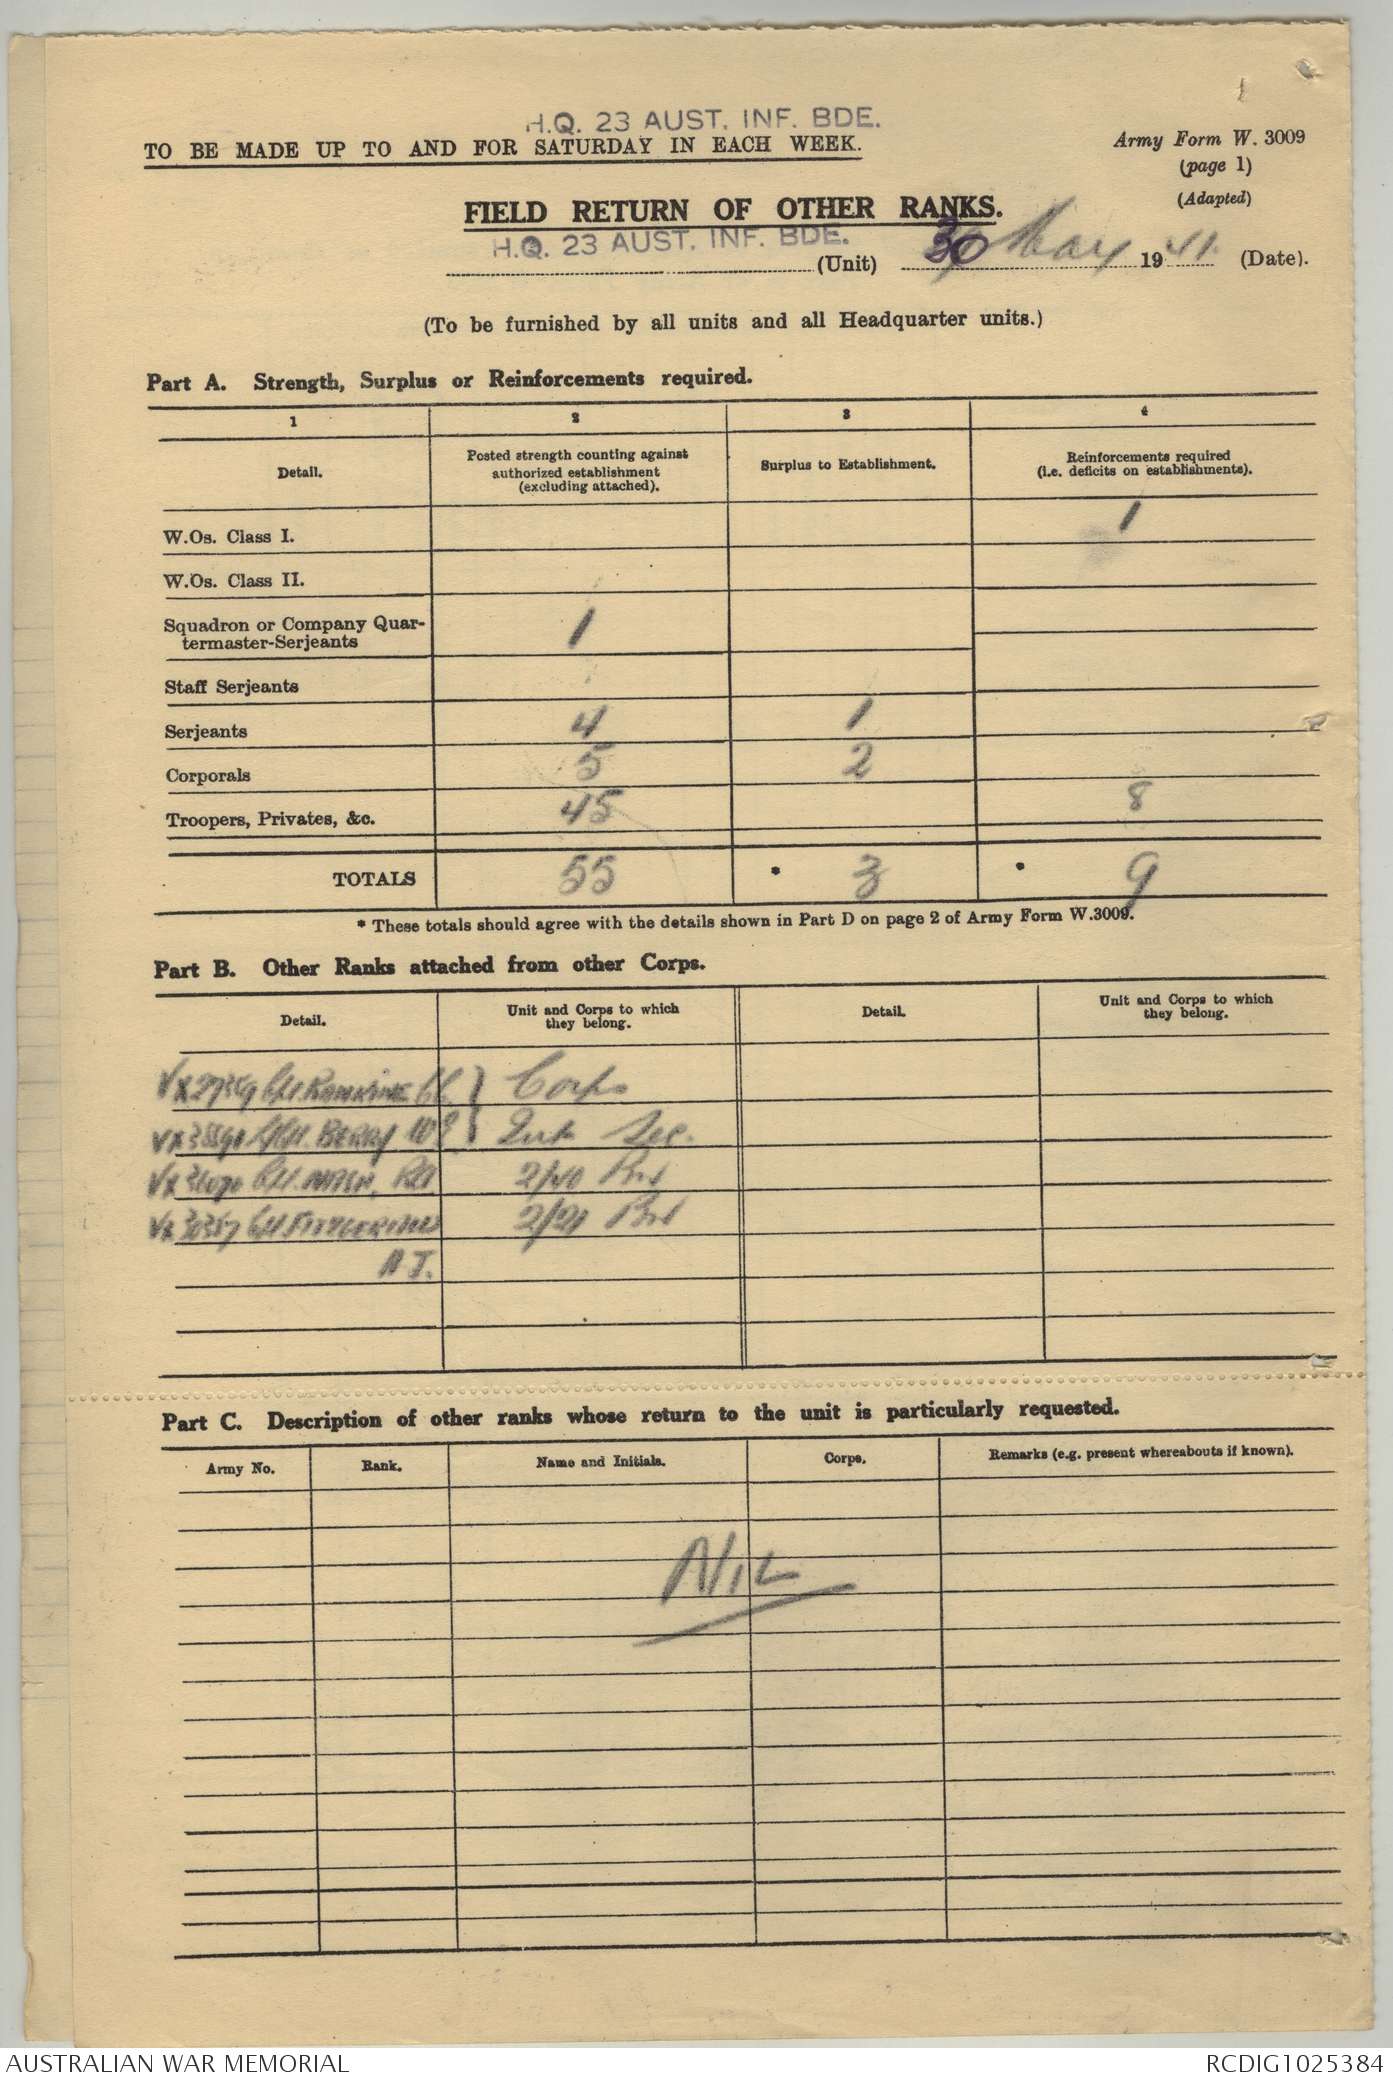 H.Q. 23 AUST. INF. BDE.
TO BE MADE UP TO AND FOR SATURDAY IN EACH WEEK.
Army Form W. 3009
(page 1)
(Adapted)
FIELD RETURN OF OTHER RANKS.
H.Q. 23 AUST. INF. BDE. (Unit) 30 May 1941. (Date).
(To be furnished by all units and all Headquarter units.)
Part A. Strength, Surplus or Reinforcements required.
1 2 3 4
Detail. Posted strength counting against authorized establishment (excluding attached). Surplus to Establishment. Reinforcements required (i.e. deficits on establishments).
W.Os. Class I. 1
W.Os. Class II.
Squadron or Company Quar-
termaster-Serjeants 1
Staff Serjeants
Serjeants 4 1
Corporals 5 2
Troopers, Privates, &c. 45 8
TOTALS 55 * 3 * 9
* These totals should agree with the details shown in Part D on page 2 of Army Form W.3009.
Part B. Other Ranks attached from other Corps.
Detail. Unit and Corps to which they belong. Detail. Unit and Corps to which they belong.
Corps
BERRY Int Sec.
2/40 Bn
FITZGERALD 2/21 Bn
A J.
Part C. Description of other ranks whose return to the unit is particularly requested.
Army No. Rank. Name and Initials. Corps. Remarks (e.g. present whereabouts if known).
NIL
AUSTRALIAN WAR MEMORIAL
RCDIG1025384